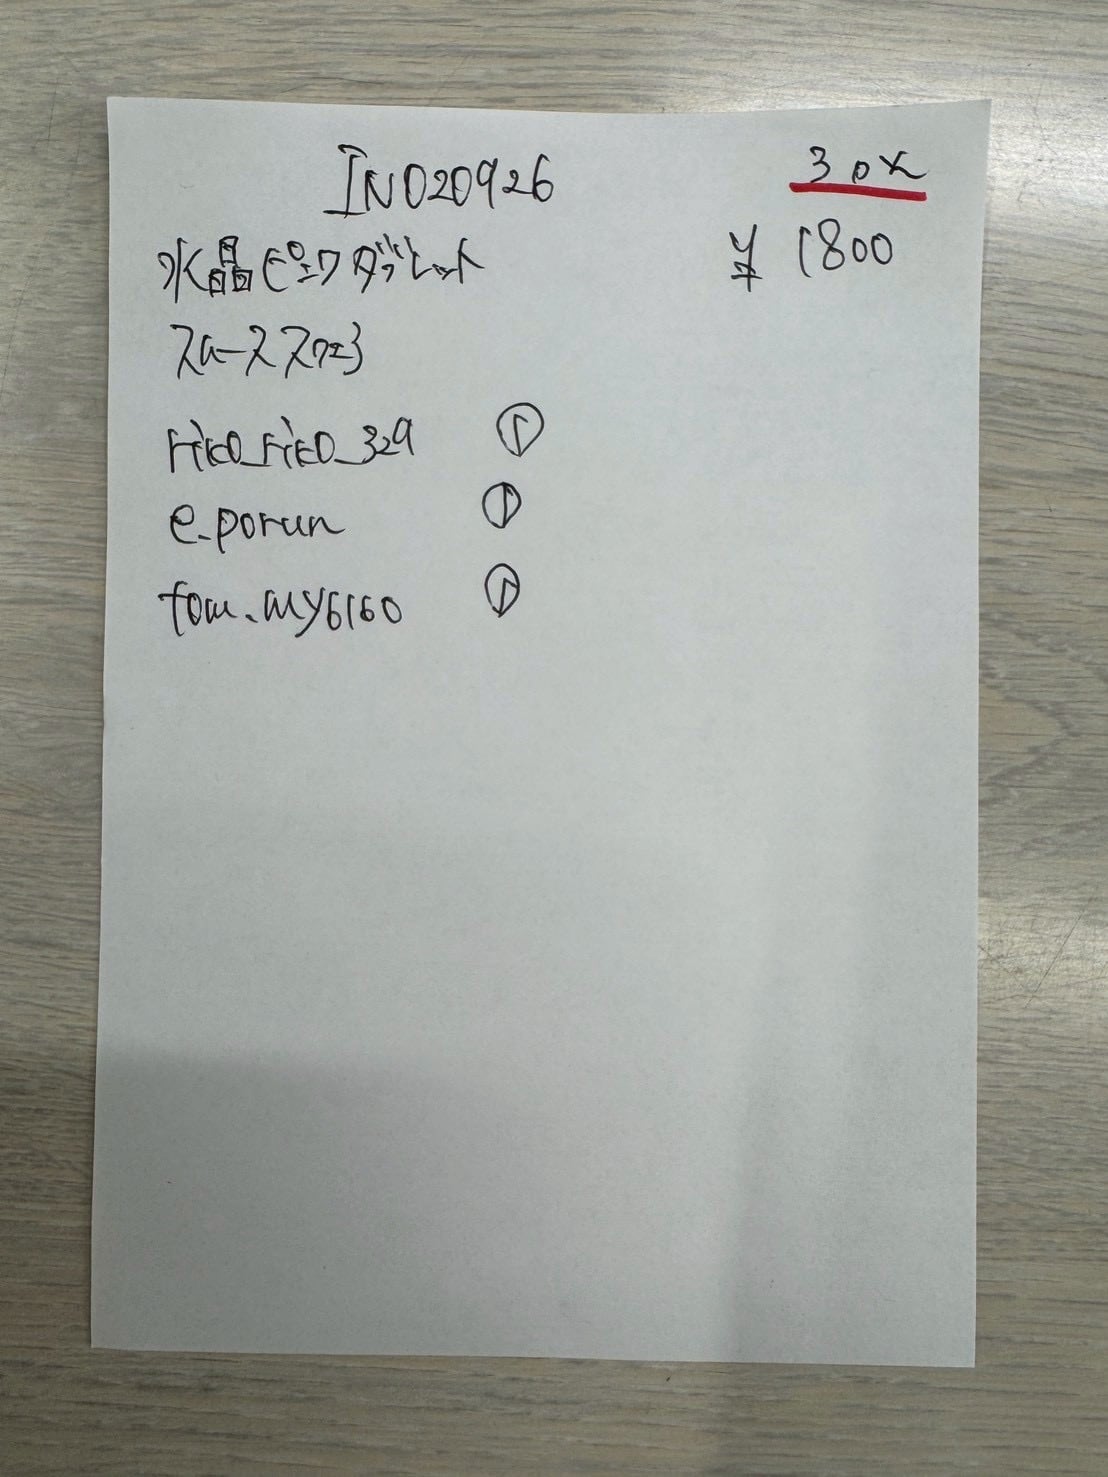 INO20926
30%
水晶ピンクダブレット
¥ 1800
スースフェ3
rico_rico_329 ①
e.porun ①
tom.my6160 ①